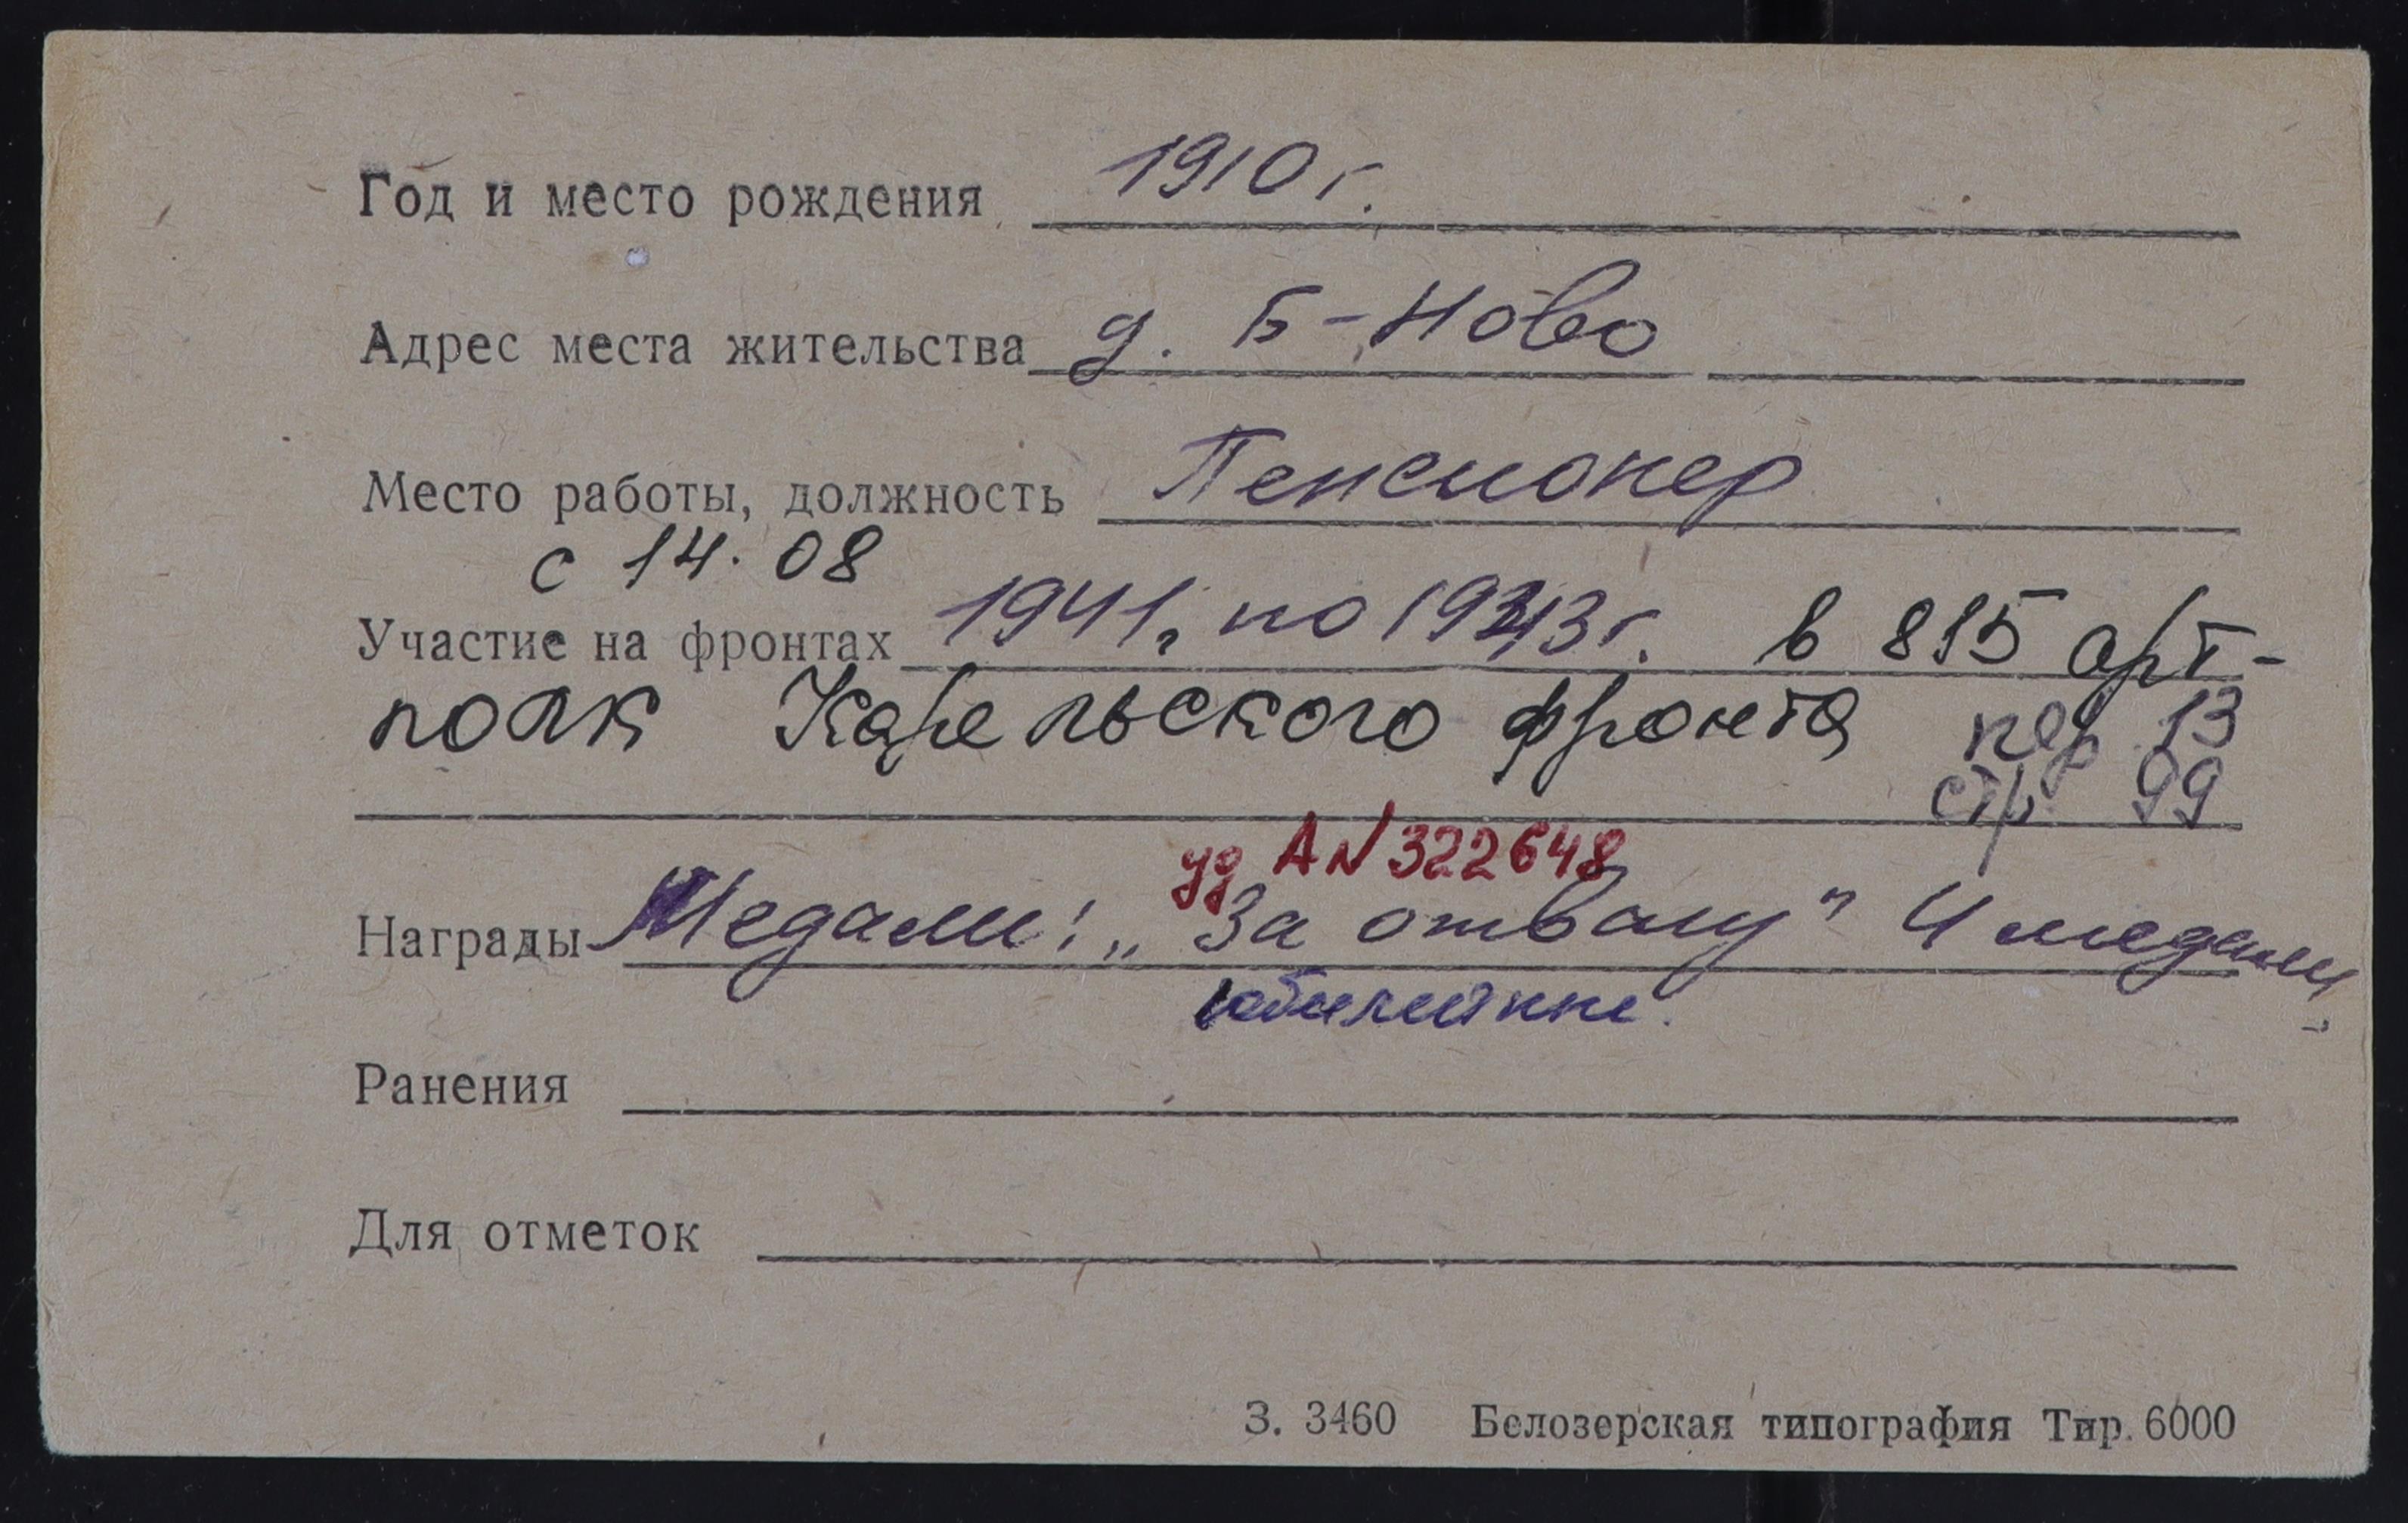 Год и место рождения 1910 г.
Адрес места жительства д. Б-Ново
Место работы, должность Пенсионер
с 14.08
Участие на фронтах 1941, по 1943 г. в 815 арт-
полк Карельского фронта пер 13
стр 99
уд А N 322648
Награды Медали: „За отвагу" 4 медали,
юбилейные.
Ранения
Для отметок
З. 3460 Белозерская типография Тир. 6000